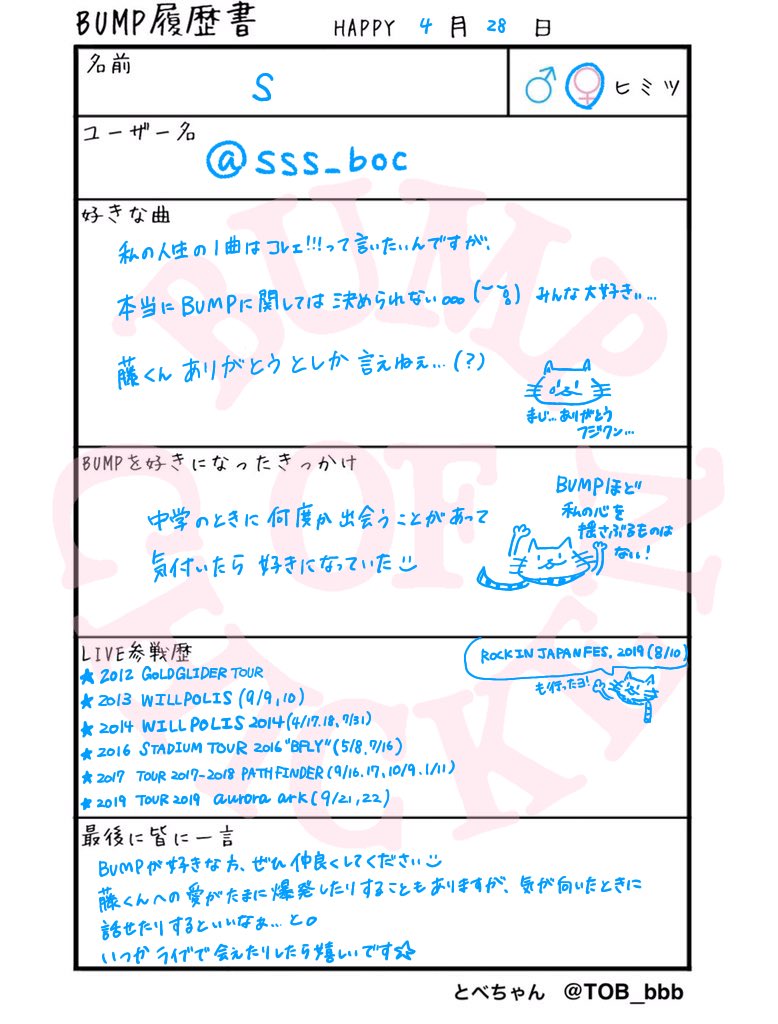 BUMP履歴書 HAPPY 4月28日
名前
S
♂ ♀ ヒミツ
ユーザー名
@sss_boc
好きな曲
私の人生の1曲はコレェ!!!って言いたいんですが、
本当にBUMPに関しては決められない。。。 みんな大好きぃ…
藤くんありがとうとしか言えねぇ…(?)
まじ…ありがとう
フジワン…
BUMPを好きになったきっかけ
中学のときに何度か出会うことがあって
気付いたら好きになっていた
BUMPほど
私の心を
揺さぶるものは
ない!
LIVE参戦歴
★2012 GOLDGLIDER TOUR
★2013 WILLPOLIS (9/9,10)
★2014 WILLPOLIS 2014(4/17.18,7/31)
★2016 STADIUM TOUR 2016"BFLY"(5/8.7/16)
★2017 TOUR 2017-2018 PATHFINDER(9/16.17,10/9.1/11)
★2019 TOUR 2019 aurora ark(9/21,22)
ROCK IN JAPAN FES. 2019(8/10)
も行ったヨ!
最後に皆に一言
BUMPが好きな方、ぜひ仲良くしてください
藤くんへの愛がたまに爆発したりすることもありますが、気が向いたときに
話せたりするといいなぁ…と。
いつかライブで会えたりしたら嬉しいです☆
とべちゃん @TOB_bbb
BUMP OF CHICKEN